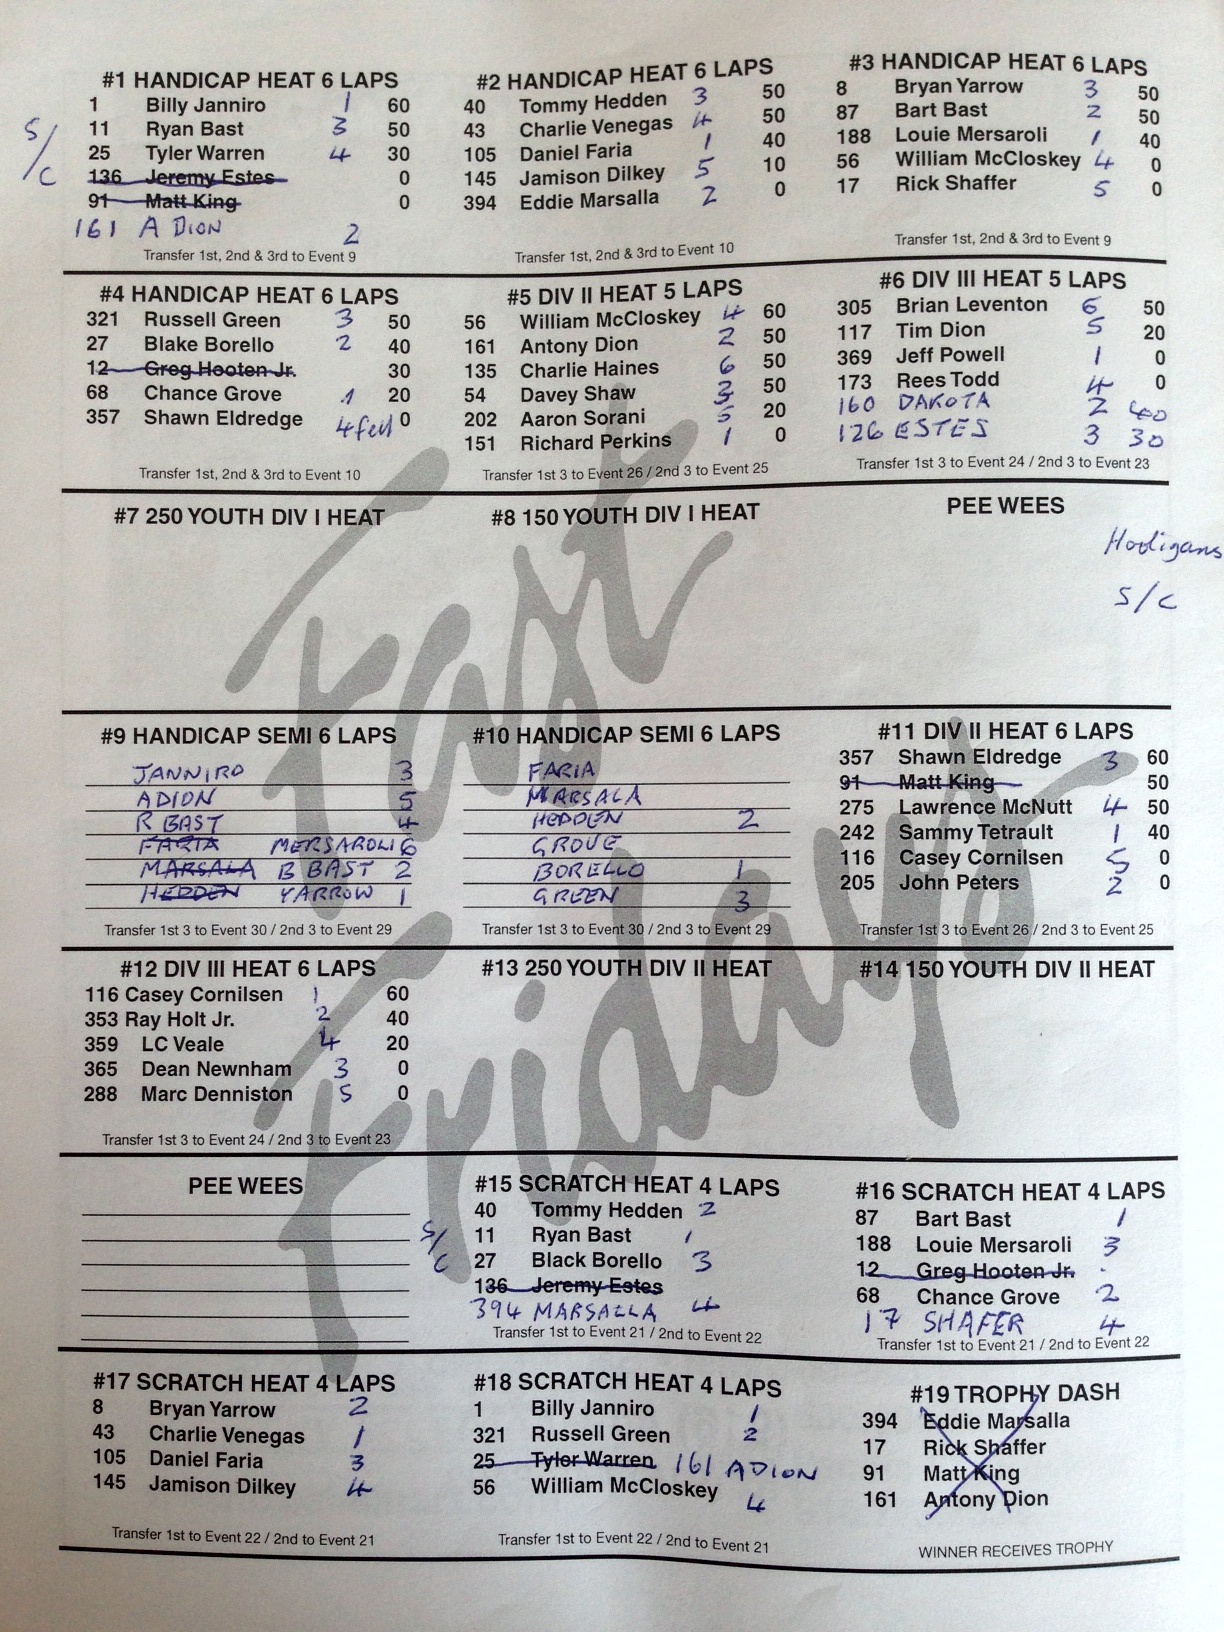 #1 HANDICAP HEAT 6 LAPS
1 Billy Janniro 1 60
S/C
11 Ryan Bast 3 50
25 Tyler Warren 4 30
136 Jeremy Estes 0
91 Matt King 0
161 A DION 2
Transfer 1st, 2nd & 3rd to Event 9
#2 HANDICAP HEAT 6 LAPS
40 Tommy Hedden 3 50
43 Charlie Venegas 4 50
105 Daniel Faria 1 40
145 Jamison Dilkey 5 10
394 Eddie Marsalla 2 0
Transfer 1st, 2nd & 3rd to Event 10
#3 HANDICAP HEAT 6 LAPS
8 Bryan Yarrow 3 50
87 Bart Bast 2 50
188 Louie Mersaroli 1 40
56 William McCloskey 4 0
17 Rick Shaffer 5 0
Transfer 1st, 2nd & 3rd to Event 9
#4 HANDICAP HEAT 6 LAPS
321 Russell Green 3 50
27 Blake Borello 2 40
12 Greg Hooten Jr. 30
68 Chance Grove 1 20
357 Shawn Eldredge 4 fell 0
Transfer 1st, 2nd & 3rd to Event 10
#5 DIV II HEAT 5 LAPS
56 William McCloskey 4 60
161 Antony Dion 2 50
135 Charlie Haines 6 50
54 Davey Shaw 3 50
202 Aaron Sorani 5 20
151 Richard Perkins 1 0
Transfer 1st 3 to Event 26 / 2nd 3 to Event 25
#6 DIV III HEAT 5 LAPS
305 Brian Leventon 6 50
117 Tim Dion 5 20
369 Jeff Powell 1 0
173 Rees Todd 4 0
160 DAKOTA 2 40
126 ESTES 3 30
Transfer 1st 3 to Event 24 / 2nd 3 to Event 23
#7 250 YOUTH DIV I HEAT
#8 150 YOUTH DIV I HEAT
PEE WEES
Hooligans
S/C
Fast
Fridays
#9 HANDICAP SEMI 6 LAPS
JANNIRO 3
ADION 5
R BAST 4
FARIA MERSAROLI 6
MARSALA B BAST 2
HEDDEN YARROW 1
Transfer 1st 3 to Event 30 / 2nd 3 to Event 29
#10 HANDICAP SEMI 6 LAPS
FARIA
MARSALA
HEDDEN 2
GROVE
BORELLO 1
GREEN 3
Transfer 1st 3 to Event 30 / 2nd 3 to Event 29
#11 DIV II HEAT 6 LAPS
357 Shawn Eldredge 3 60
91 Matt King 50
275 Lawrence McNutt 4 50
242 Sammy Tetrault 1 40
116 Casey Cornilsen 5 0
205 John Peters 2 0
Transfer 1st 3 to Event 26 / 2nd 3 to Event 25
#12 DIV III HEAT 6 LAPS
116 Casey Cornilsen 1 60
353 Ray Holt Jr. 2 40
359 LC Veale 4 20
365 Dean Newnham 3 0
288 Marc Denniston 5 0
Transfer 1st 3 to Event 24 / 2nd 3 to Event 23
#13 250 YOUTH DIV II HEAT
#14 150 YOUTH DIV II HEAT
PEE WEES
#15 SCRATCH HEAT 4 LAPS
40 Tommy Hedden 2
S/C
11 Ryan Bast 1
27 Black Borello 3
136 Jeremy Estes
394 MARSALLA 4
Transfer 1st to Event 21 / 2nd to Event 22
#16 SCRATCH HEAT 4 LAPS
87 Bart Bast 1
188 Louie Mersaroli 3
12 Greg Hooten Jr.
68 Chance Grove 2
17 SHAFER 4
Transfer 1st to Event 21 / 2nd to Event 22
#17 SCRATCH HEAT 4 LAPS
8 Bryan Yarrow 2
43 Charlie Venegas 1
105 Daniel Faria 3
145 Jamison Dilkey 4
Transfer 1st to Event 22 / 2nd to Event 21
#18 SCRATCH HEAT 4 LAPS
1 Billy Janniro 1
321 Russell Green 2
25 Tyler Warren 161 A DION
56 William McCloskey 4
Transfer 1st to Event 22 / 2nd to Event 21
#19 TROPHY DASH
394 Eddie Marsalla
17 Rick Shaffer
91 Matt King
161 Antony Dion
WINNER RECEIVES TROPHY